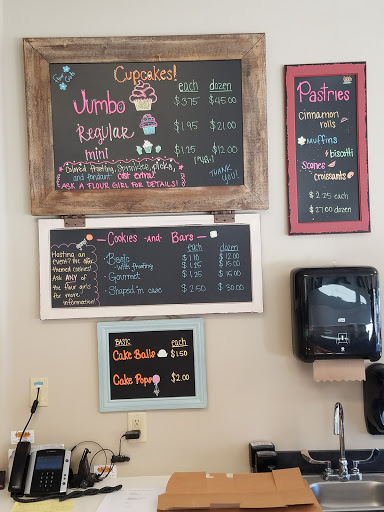 Cupcakes!
each dozen
Jumbo $3.75 $45.00
Regular $1.95 $21.00
mini $1.25 $12.00
Colored frosting, sprinkles, picks,
and fondant cost extra!
ASK A FLOUR GIRL FOR DETAILS!
THANK YOU!
Pastries
cinnamon
rolls
muffins
biscotti
Scones
croissants
$2.25 each
$27.00 dozen
Cookies and Bars
each dozen
Hosting an
event? We offer
themed cookies!
Ask ANY of
the flour girls
for more
information!
Basic $1.10 $12.00
with frosting $1.25 $15.00
Gourmet $1.25 $15.00
Shaped in case $2.50 $30.00
BASIC each
Cake Balls $1.50
Cake Pops $2.00